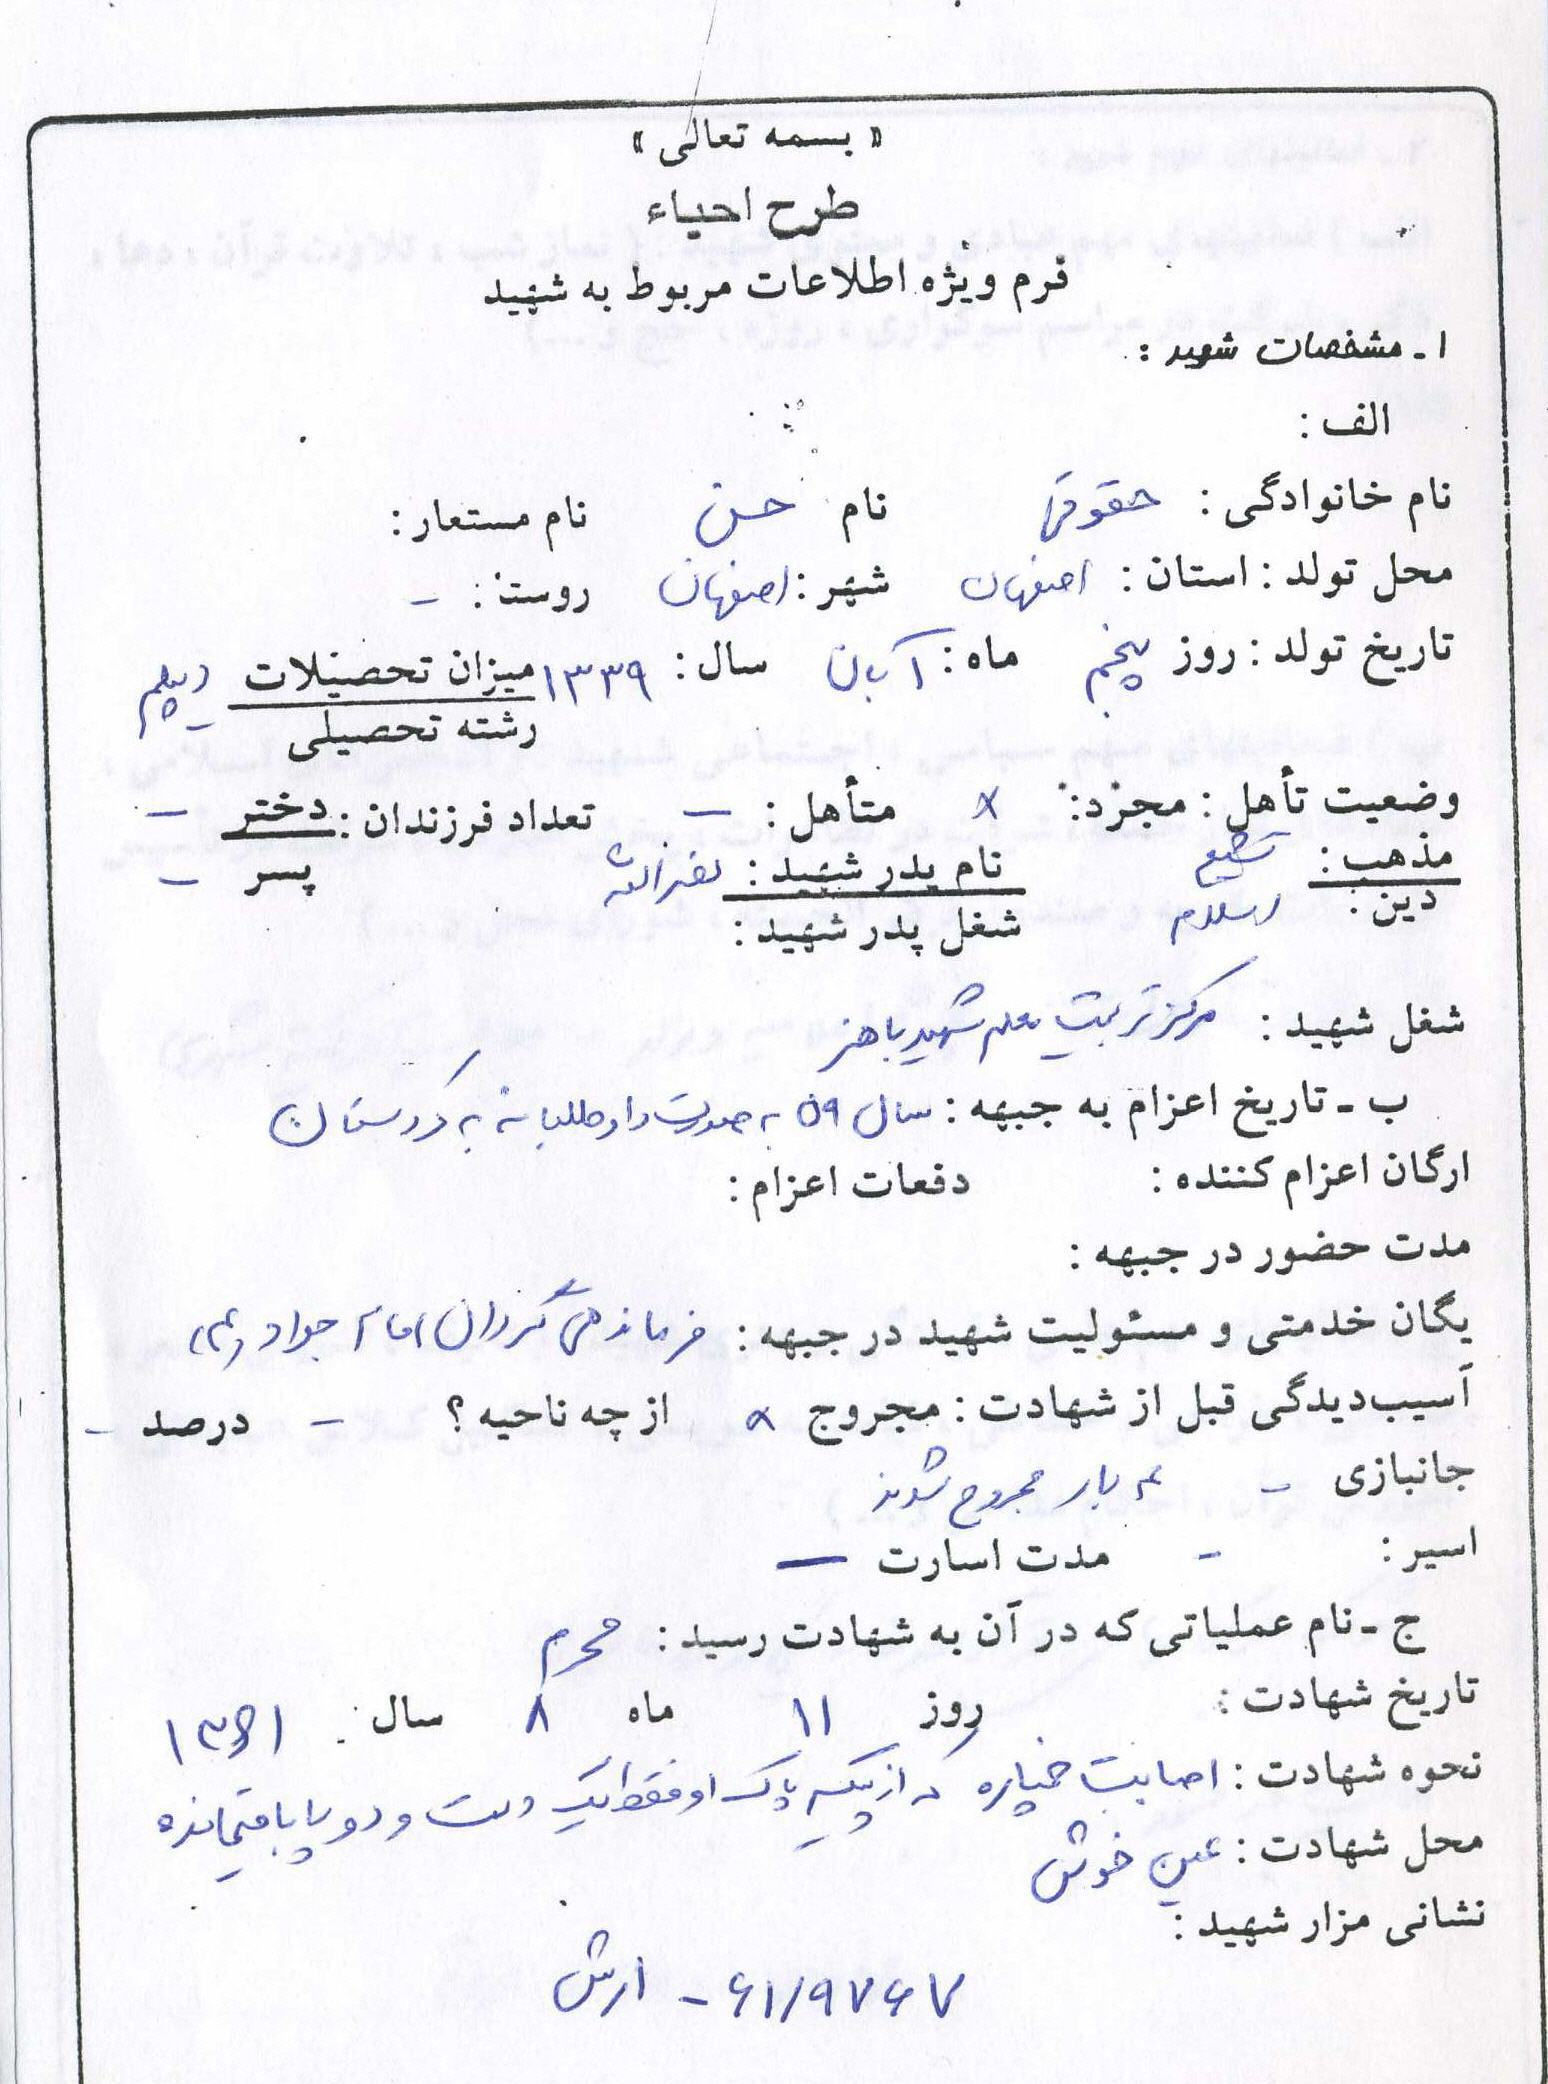 « بسمه تعالی »
طرح احیاء
فرم ویژه اطلاعات مربوط به شهید
۱ـ مشخصات شهید :
الف :
نام خانوادگی : حقوقی نام حسن نام مستعار :
محل تولد : استان : اصفهان شهر : اصفهان روستا : -
تاریخ تولد : روز پنجم ماه : آبان سال : ۱۳۳۹ میزان تحصیلات دیپلم
رشته تحصیلی -
وضعیت تأهل : مجرد : × متأهل : - تعداد فرزندان : دختر -
مذهب : تشیع نام پدر شهید : پسر -
دین : اسلام شغل پدر شهید :
شغل شهید : مرکز تربیت معلم شهید باهنر
ب ـ تاریخ اعزام به جبهه : سال ۵۹ به صورت داوطلبانه به کردستان
ارگان اعزام کننده : دفعات اعزام :
مدت حضور در جبهه :
یگان خدمتی و مسئولیت شهید در جبهه : فرماندهی گردان امام جواد (ع)
آسیب‌دیدگی قبل از شهادت : مجروح × از چه ناحیه ؟ - درصد -
جانبازی - ۴ بار مجروح شدند
اسیر : - مدت اسارت -
ج ـ نام عملیاتی که در آن به شهادت رسید : محرم
تاریخ شهادت : روز ۱۱ ماه ۸ سال : ۱۳۶۱
نحوه شهادت : اصابت خمپاره که از پیکر پاک او فقط یک دست و دو پا باقیمانده
محل شهادت : عین خوش
نشانی مزار شهید :
۶۱/۹۷۶۷ - ارتش